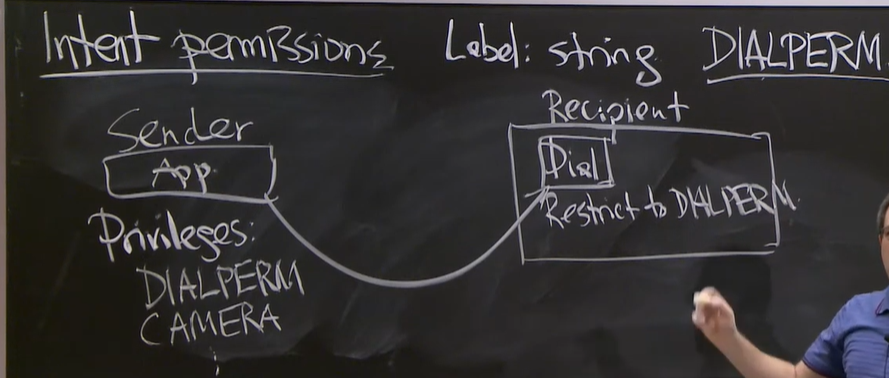 Intent permissions Label: string DIALPERM
Sender
App
Privileges:
DIALPERM
CAMERA
Recipient
Dial
Restrict to DIALPERM